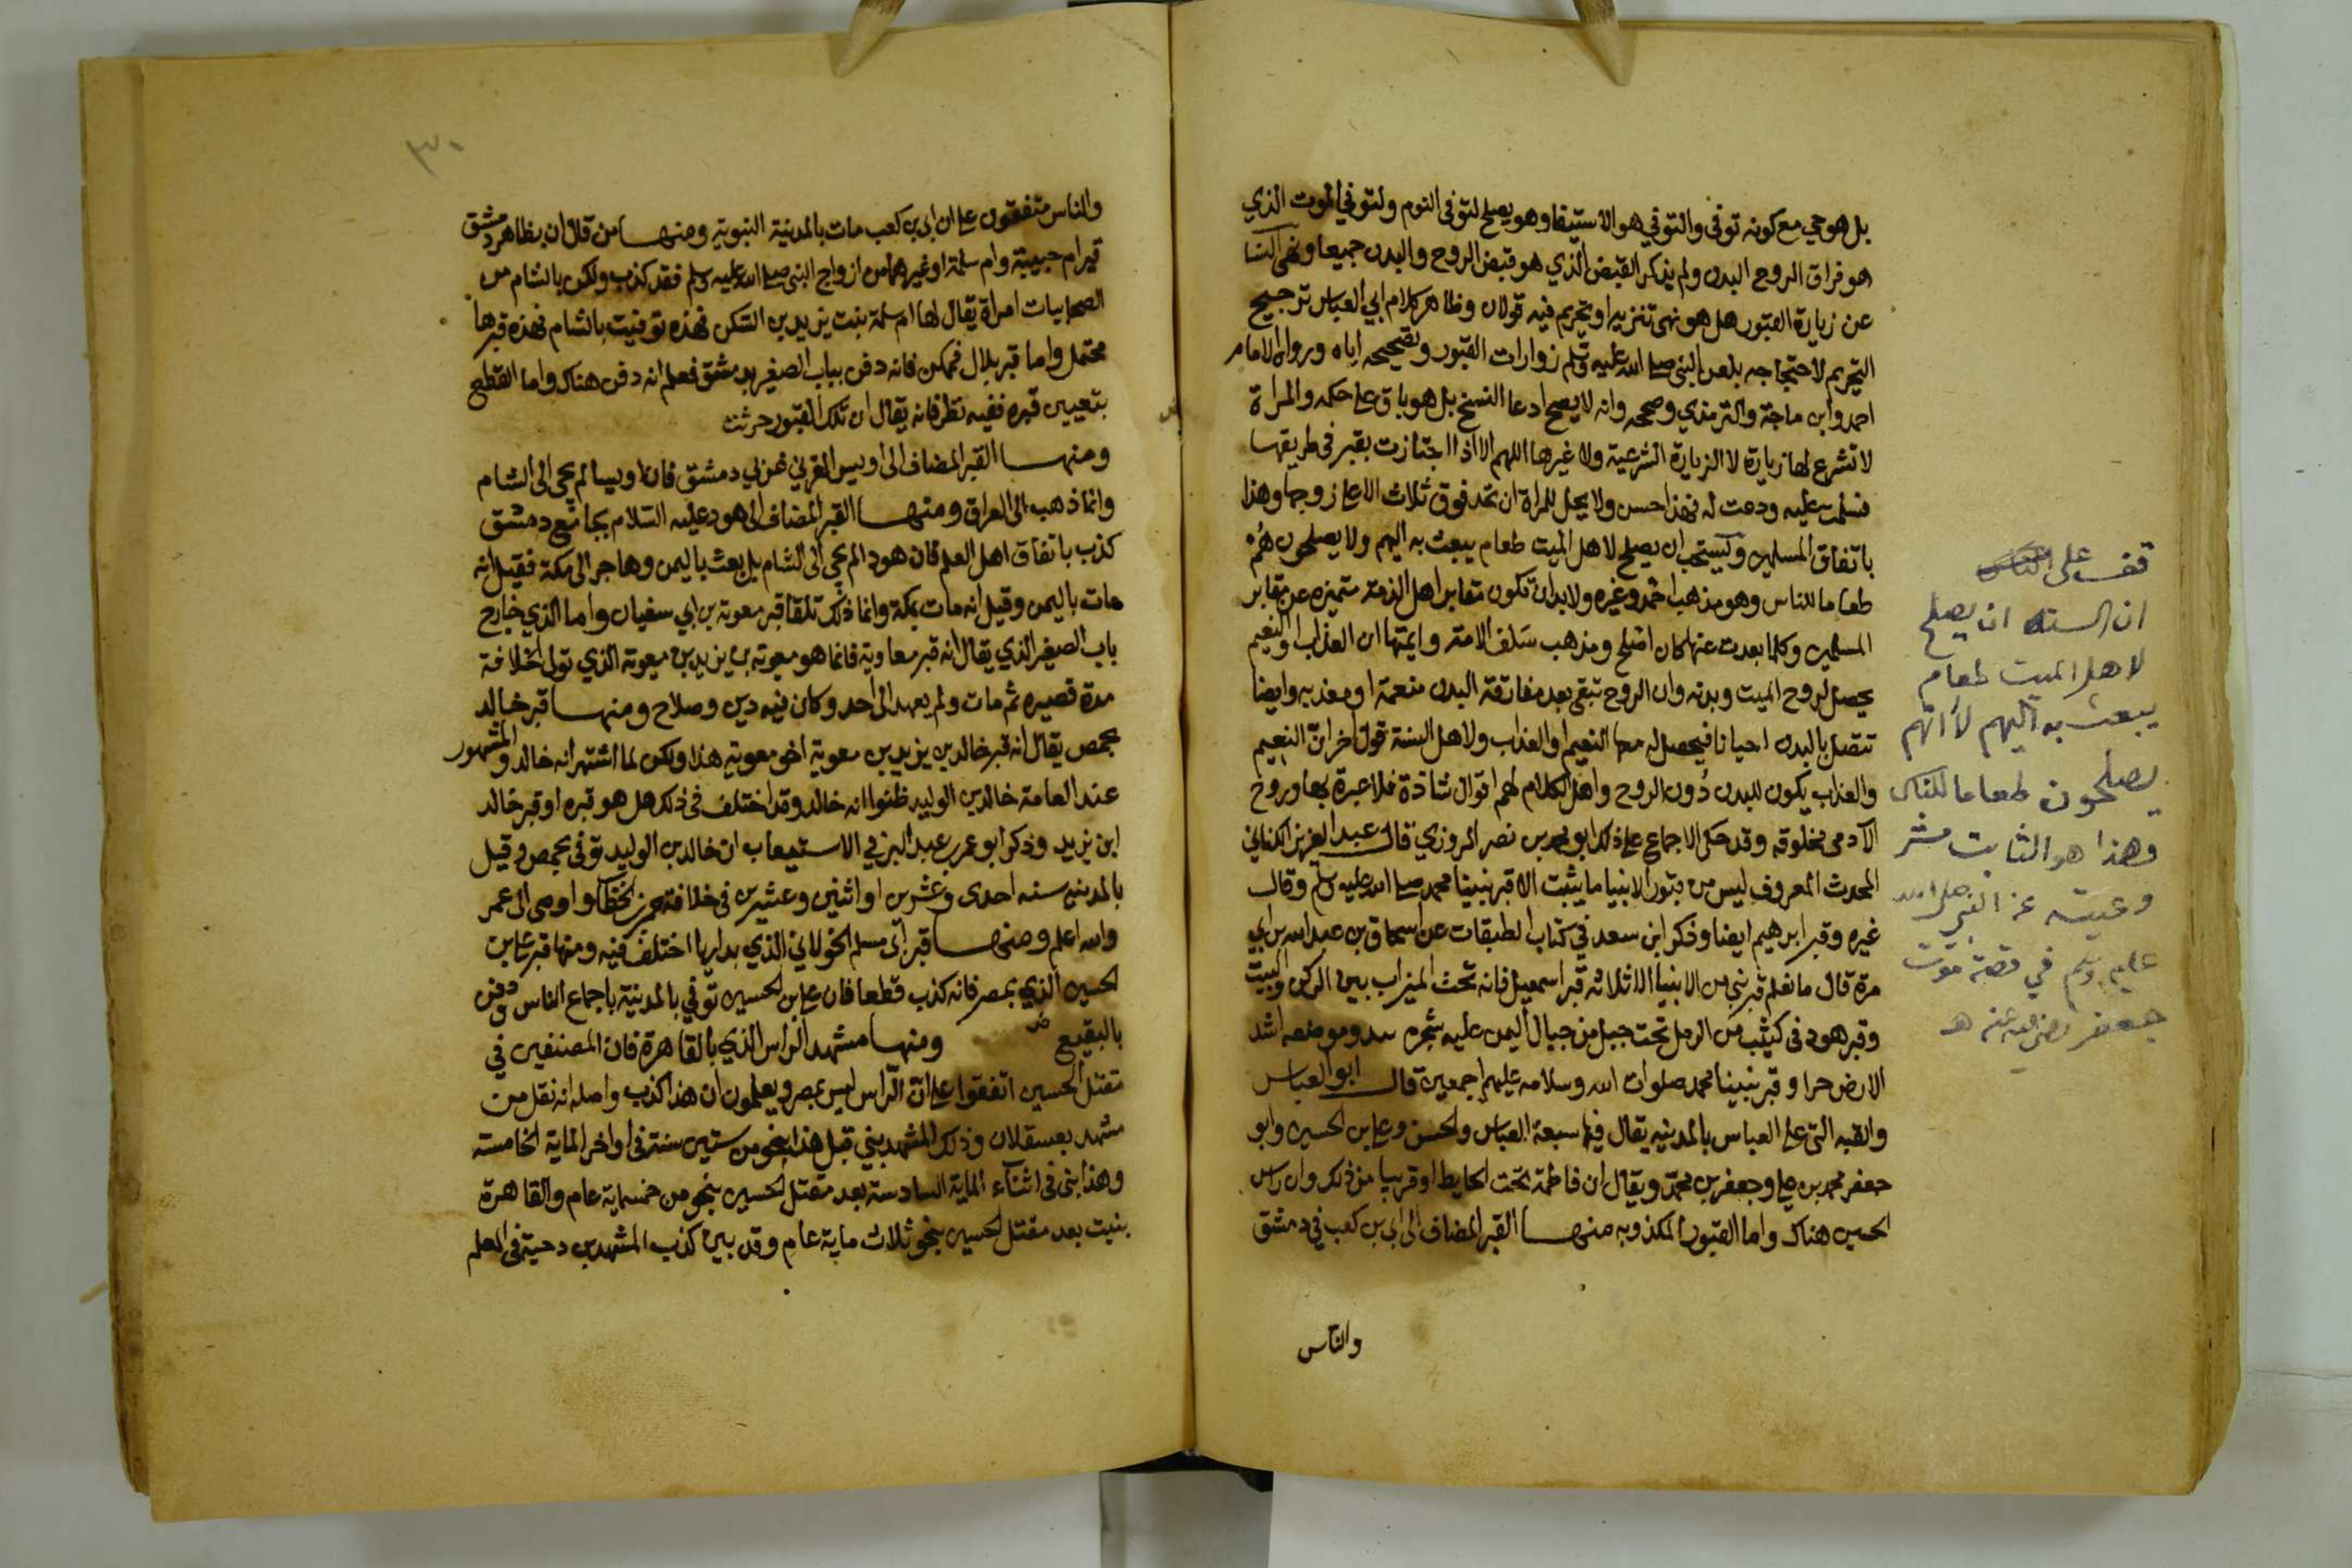 بل هو حي مع كونه توفى والتوفي هو الاستيفا وهو يصلح لتوفى النوم ولتوفي الموت الذي
هو فراق الروح البدن ولم يذكر القبض الذي هو قبض الروح والبدن جميعا ونهى النسا
عن زيارة القبور هل هو نهى تنزيه او تحريم فيه قولان وظاهر كلام ابي العباس ترجيح
التحريم لاحتجاجه بلعن النبي صلى الله عليه وسلم زوارات القبور وتصحيحه اياه ورواه الامام
احمد وابن ماجة والترمذي وصححه وانه لا يصح ادعا النسخ بل هو باق على حكمه والمراة
لا تشرع لها زيارة لا الزيارة الشرعية ولا غيرها اللهم الا اذا اجتازت بقبر في طريقها
فسلمت عليه ودعت له فهذا حسن ولا يحل للمراة ان تحد فوق ثلاث الا على زوجها وهذا
باتفاق المسلمين ويستحب ان يصلح لاهل الميت طعام يبعث به اليهم ولا يصلحون هم
طعاما للناس وهو مذهب احمد وغيره ولابد ان تكون مقابر اهل الذمة متميزه عن مقابر
المسلمين وكلما بعدت عنها كان اصلح ومذهب سلف الامة وايمتها ان العذاب او النعيم
يحصل لروح الميت وبدنه وان الروح تبقى بعد مفارقة البدن منعمة او معذبه وايضا
تتصل بالبدن احيانا فيحصل له معها النعيم او العذاب ولاهل السنة قول اخر ان النعيم
والعذاب يكون للبدن دون الروح واهل الكلام لهم اقوال شاذة فلا عبرة بها وروح
الآدمى مخلوقه وقد حكى الاجماع على ذلك ابو محمد بن نصر المروزي قال عبد العزيز الكناني
المحدث المعروف ليس من قبور الانبيا ما يثبت الا قبر نبينا محمد صلى الله عليه وسلم وقال
غيره وقبر ابرهيم ايضا وذكر ابن سعد في كتاب الطبقات عن اسحاق بن عبد الله بن ابي
مرة قال ما نعلم قبر نبي من الانبيا الا ثلاثه قبر اسمعيل فانه تحت الميزاب بين الركن والبيت
وقبر هود في كثيب من الرمل تحت جبل من جبال اليمن عليه شجره تندى وموضعه اشد
الارض حرا وقبر نبينا محمد صلوات الله وسلامه عليهم اجمعين قال ابو العباس
والقبه التى على العباس بالمدينه يقال فيها سبعة العباس والحسن وعلي بن الحسين وابو
جعفر محمد بن علي وجعفر بن محمد ويقال ان فاطمة تحت الحايط او قريبا من ذلك وان راس
الحسين هناك واما القبور المكذوبه منهــا القبر المضاف الى ابي بن كعب في دمشق
والناس
قف على
ان السنه ان يصلح
لاهل الميت طعام
يبعث به اليهم لا انهم
يصلحون طعاما للناس
وهذا هو الثابت
عن النبي صلى الله
عليه وسلم في قصة موت
جعفر رضي الله عنه اهـ
٣٠
والناس متفقون على ان ابي بن كعب مات بالمدينة النبوية ومنهــا من قال ان بظاهر دمشق
قبر ام حبيبة وام سلمة او غيرهما من ازواج النبى صلى الله عليه وسلم فقد كذب ولكن بالشام من
الصحابيات امراة يقال لها ام سلمة بنت يزيد بن السكن فهذه توفيت بالشام فهذه قبرها
محتمل واما قبر بلال فممكن فانه دفن بباب الصغير بدمشق فعلم انه دفن هناك واما القطع
بتعيين قبره ففيه نظر فانه يقال ان تلك القبور حرثت
ومنهــا القبر المضاف الى اويس القرني غربي دمشق فان اويسا لم يجى الى الشام
وانما ذهب الى العراق ومنهــا القبر المضاف الى هود عليه السلام بجامع دمشق
كذب باتفاق اهل العلم فان هودا لم يجي الى الشام بل بعث باليمن وهاجر الى مكة فقيل انه
مات باليمن وقيل انه مات بمكة وانما ذلك تلقا قبر معوية بن ابي سفيان واما الذي خارج
باب الصغير الذي يقال انه قبر معاوية فانما هو معوية بن يزيد بن معوية الذي تولى الخلافة
مدة قصيره ثم مات ولم يعهد الى احد وكان فيه دين وصلاح ومنهــا قبر خالد
بحمص يقال انه قبر خالد بن يزيد بن معوية اخو معوية هذا ولكن لما اشتهر انه خالد والمشهور
عند العامة خالد بن الوليد ظنوا انه خالد وقد اختلف في ذلك هل هو قبره او قبر خالد
ابن يزيد وذكر ابو عمر بن عبد البر في الاستيعاب ان خالد بن الوليد توفى بحمص وقيل
بالمدينه سنه احدى وعشرين او اثنين وعشرين في خلافة عمر بن الخطاب واوصى الى عمر
والله اعلم ومنهــا قبر ابى مسلم الخولاني الذي بداريا اختلف فيه ومنها قبر علي بن
الحسين الذي بمصر فانه كذب قطعا فان علي بن الحسين توفي بالمدينة باجماع الناس ودفن
بالبقيع ومنهــا مشهد الراس الذي بالقاهرة فان المصنفين في
مقتل الحسين اتفقوا على ان الراس ليس بمصر ويعلمون ان هذا كذب واصله انه نقل من
مشهد بعسقلان وذلك المشهد بني قبل هذا بنحو من ستين سنة في اواخر الماية الخامسة
وهذا بنى في اثناء الماية السادسة بعد مقتل الحسين بنحو من خمسماية عام والقاهرة
بنيت بعد مقتل الحسين بنحو ثلاث ماية عام وقد بين كذب المشهد بن دحية في العلم